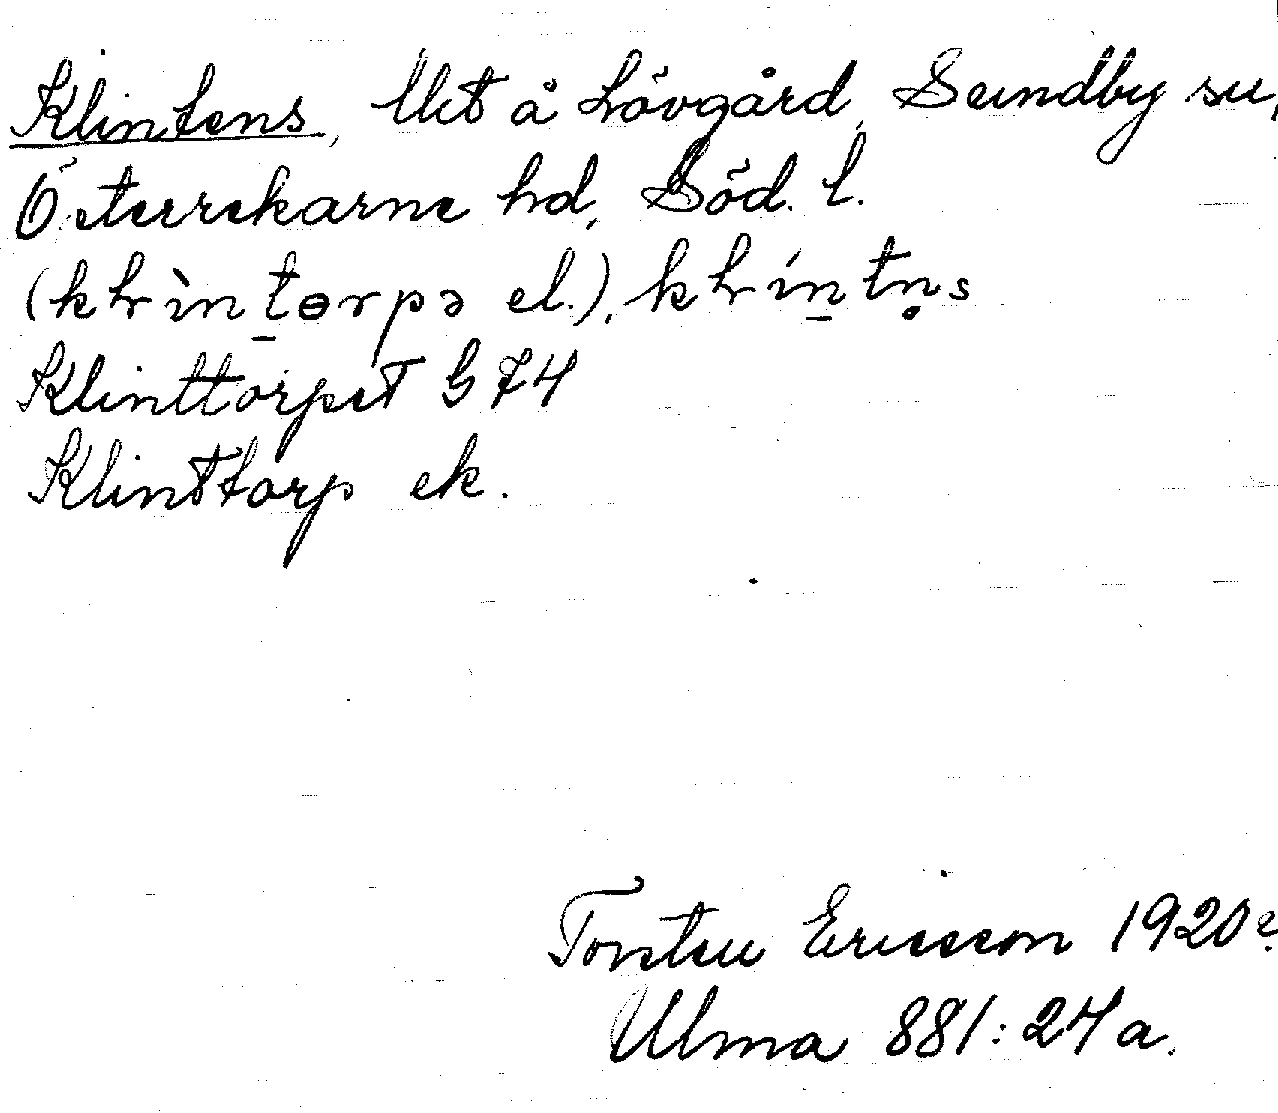 Klintens, Ut å Lövgård, Sundby sn,
Österrekarne hd, Söd. l.
(kḷìn̠tɵrpə el.), kḷín̠tn̥s
Klinttorpet G 74
Klinttorp ek.
Torsten Ericsson 1920
Ulma 881:24a.